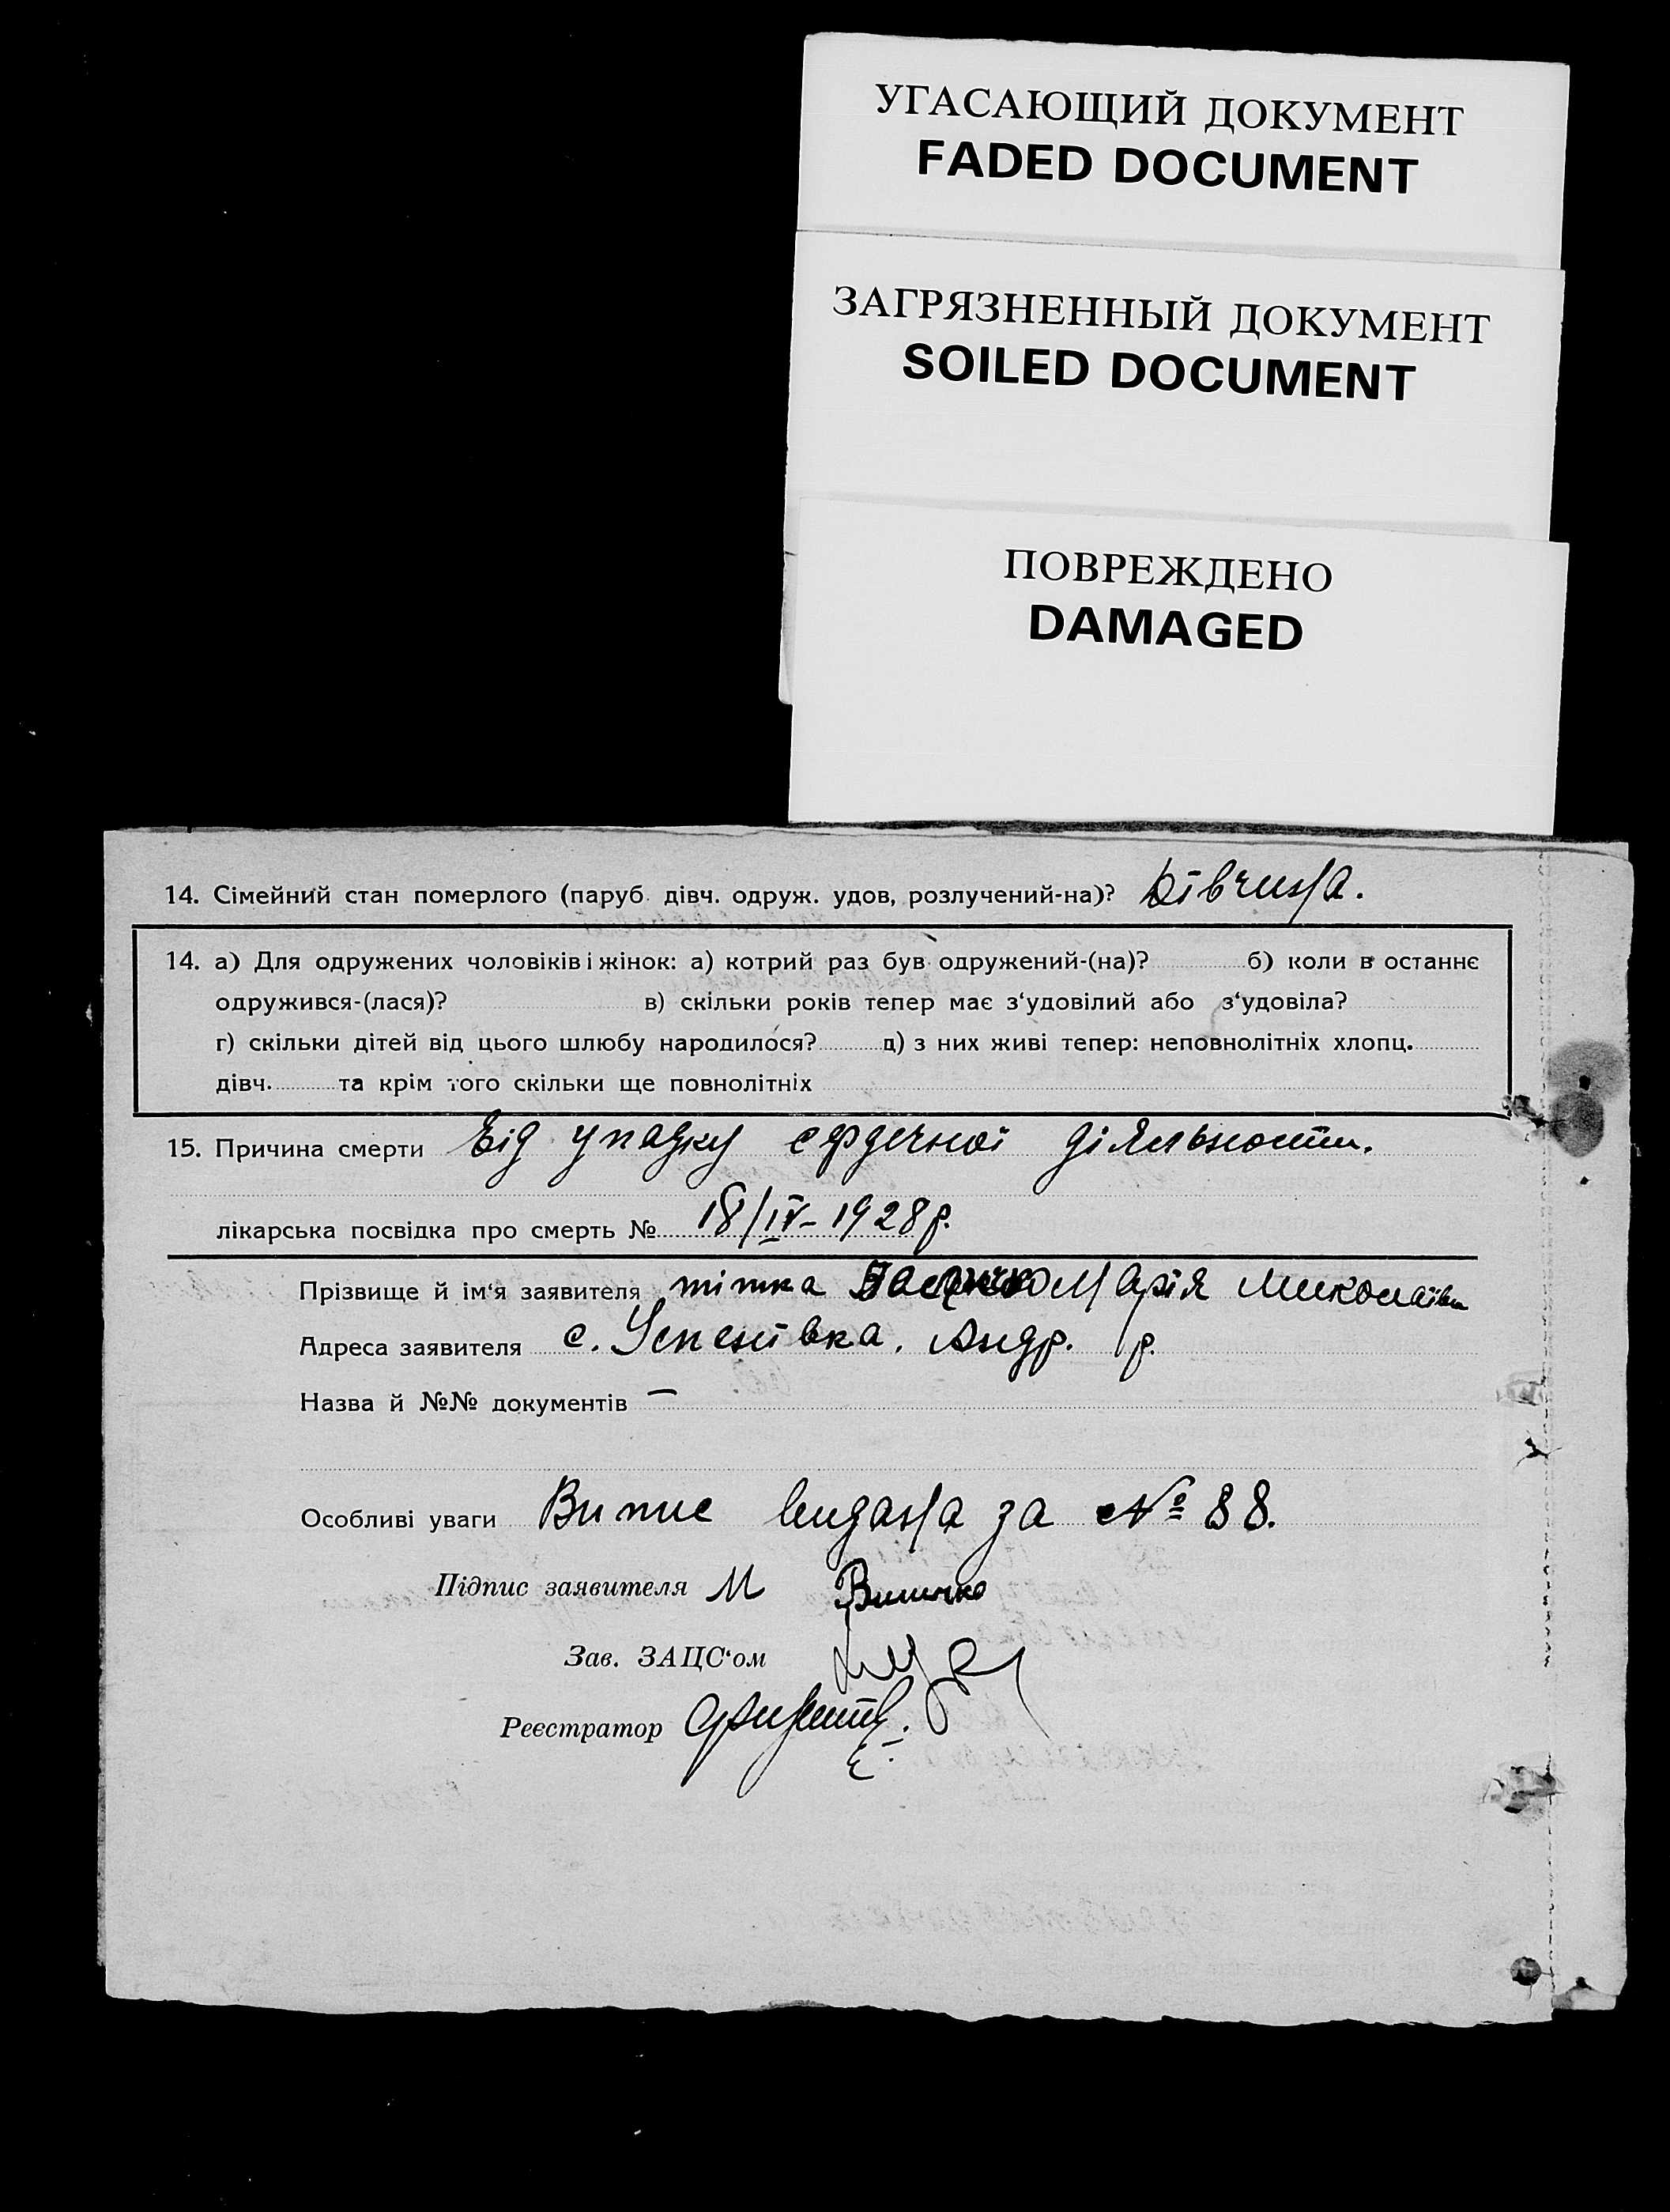 УГАСАЮЩИЙ ДОКУМЕНТ
FADED DOCUMENT
ЗАГРЯЗНЕННЫЙ ДОКУМЕНТ
SOILED DOCUMENT
ПОВРЕЖДЕНО
DAMAGED
14. Сімейний стан померлого (паруб. дівч. одруж. удов, розлучений-на)? Дівчина.
14. а) Для одружених чоловіків і жінок: а) котрий раз був одружений-(на)? б) коли в останнє
одружився-(лася)? в) скільки років тепер має з‘удовілий або з‘удовіла?
г) скільки дітей від цього шлюбу народилося? д) з них живі тепер: неповнолітніх хлопц.
дівч. та крім того скільки ще повнолітніх
15. Причина смерти Від упадку сердечної діяльности.
лікарська посвідка про смерть № 18/IV-1928 р.
Прізвище й ім‘я заявителя тітка Марія Миколаївн
Адреса заявителя с. Успенівка, Андр. р.
Назва й №№ документів —
Особливі уваги Випис видана за № 88.
Підпис заявителя М
Зав. ЗАЦС‘ом
Реєстратор